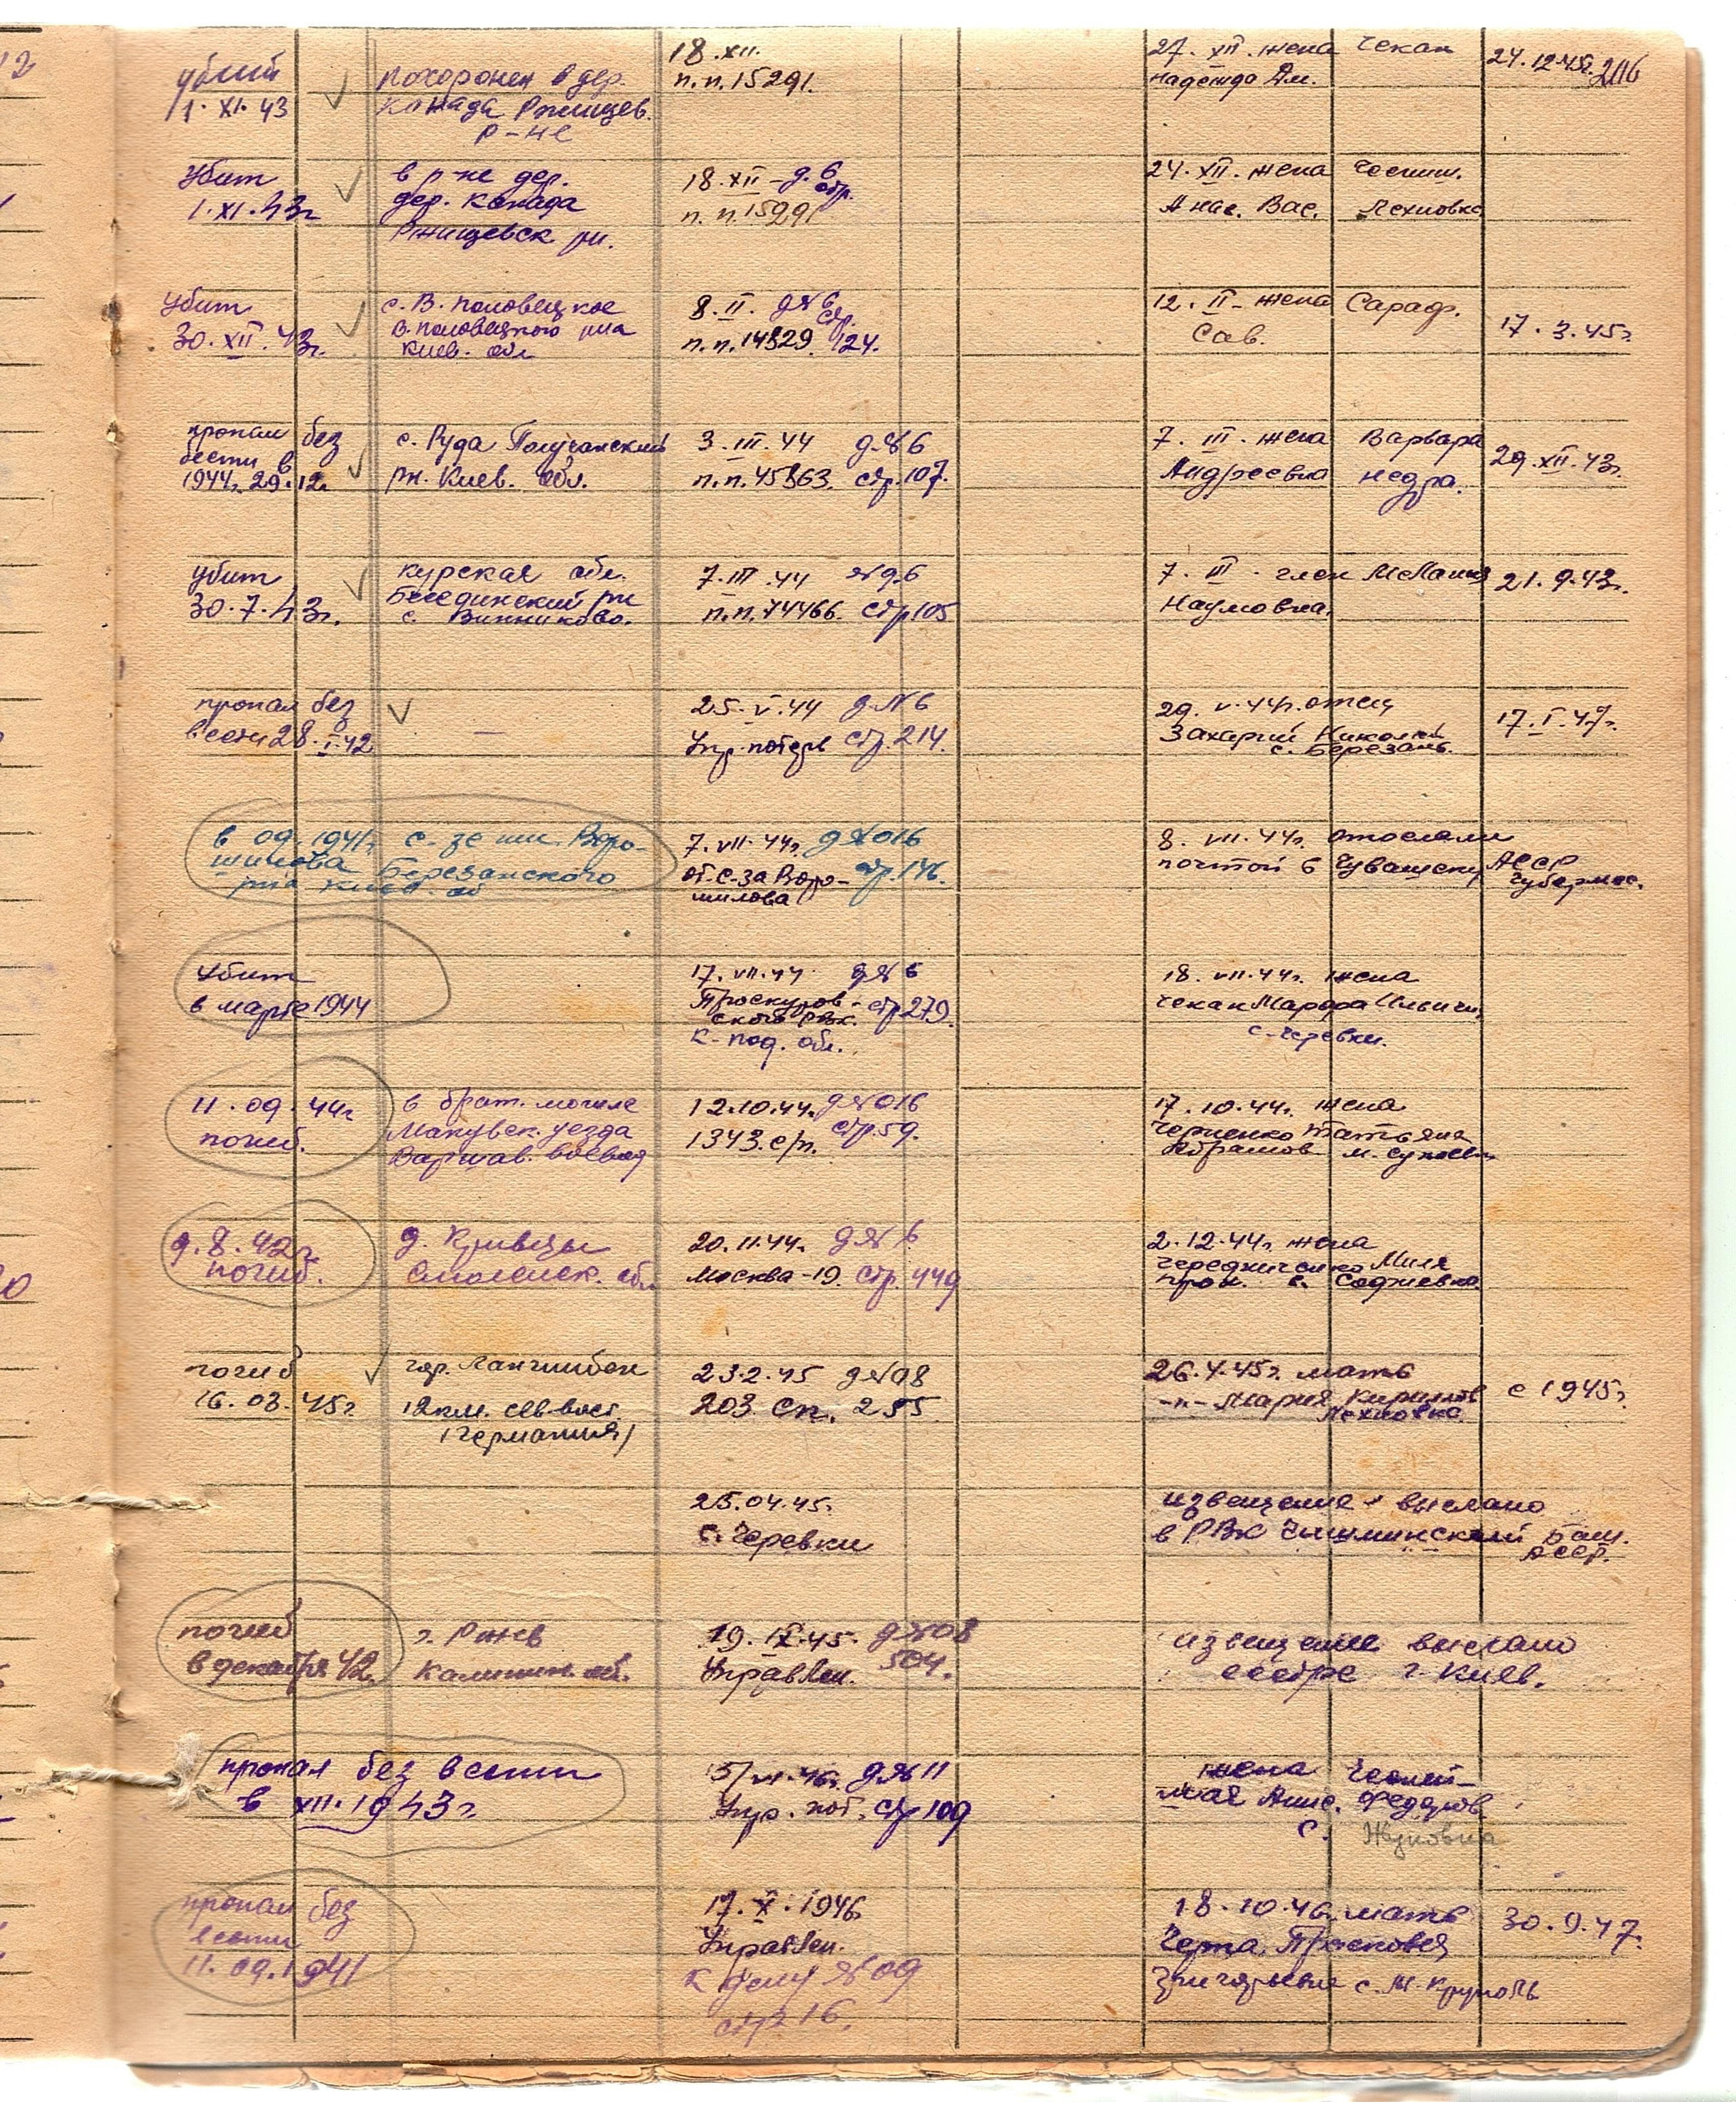 убит
1. XI. 43
похоронен в дер.
Канада Ржищев.
р-не
18. XII.
п.п. 15291.
27. XII. жена Чекан
Надежда Дм.
24. 12 45г.
206
Убит
1. XI. 43г
в р-не дер.
дер. Канада
Ржищевск рн.
18. XII - д. 6
стр.
п. п. 15291
24. XII. жена
Анас. Вас. Лехновка
Убит
30. XII. 43г.
с. В. Половецкое
В. Половецкого р-на
Киев. обл
8. II. д№6
стр.
п.п. 14829 124.
12. II - жена Сараф.
Сав.
17. 3. 45г
пропал без
вести в
1944г. 29.12.
с. Руда
рн. Киев. обл.
3. III. 44 д.№6
п.п. 45863. стр. 107.
7. III. жена Варвара
Андреевна Недра.
29. XII. 43г.
убит
30. 7. 43г.
Курская обл.
Беседински рн
с. Винниково.
7. III. 44 №д.6
п.п. 74466. стр 105
7. III. Мелания
Наумовна.
21. 9. 43г.
пропал без
вести 28. I. 42
—
25. V. 44 д.№6
Упр. потерь стр. 214.
29. V. 44г. отец
Захарий Николай
с. Березань.
17. I. 47г.
в 09. 1941г с-зе им. Воро-
шилова Березанского
р-на Киев. об
7. VII. 44г. д№016
от с-за Воро- стр. 146.
шилова
8. VII. 44г. отослали
почтой в Чувашску АССР
Убит
в марте 1944
17. VII. 44 д№6
Проскуров- стр 279.
ского рвк.
К-под. обл.
18. VII. 44г. жена
Чекан Марфа Ильич.
с. Черевки.
11. 09. 44г
погиб.
в брат. могиле
Маковск. уезда
Варшав. воевод
12. 10. 44г. д№016
1343 с/п. стр. 59.
17. 10. 44г. жена
Черненко Татьяна
Абрамов м.
9. 8. 42г.
погиб.
д. Кривцы
Смоленск. обл.
20. 11. 44г. д№6
Москва-19. стр. 449
2. 12. 44г. жена
Чередниченко Миля
прож. с. Софиевка.
погиб
16. 03. 45г
гор.
12 км. сев-вост.
(Германия)
23. 2. 45 д№08
203 сп. 255
26. 4. 45г. мать
-п- Мария Кирилов
Лехновка
с 1945г
25. 04. 45.
с. Черевки
извещение выслано
в РВК Чишминский Баш.
АССР.
погиб
в декабре 42г.
г. Ржев
Калинин. об.
19. IX. 45. д№08
Управлен. 504.
извещение выслано
сестре г. Киев.
пропал без вести
в XII. 1943г
д.№11
Упр. пот. стр 109
жена
Федоров.
с. Жуковка
пропал без
вести
11. 09. 1941
17. X. 1946
Управлен.
К делу №09
стр 16.
18. 10. 46г. мать
Черта Прасковея
Григорьевна с. М. Круполь
30. 9. 47.